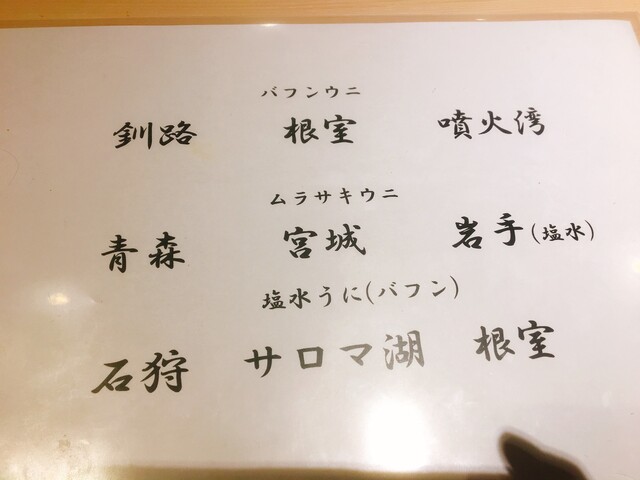 バフンウニ
釧路 根室 噴火湾
ムラサキウニ
青森 宮城 岩手(塩水)
塩水うに(バフン)
石狩 サロマ湖 根室